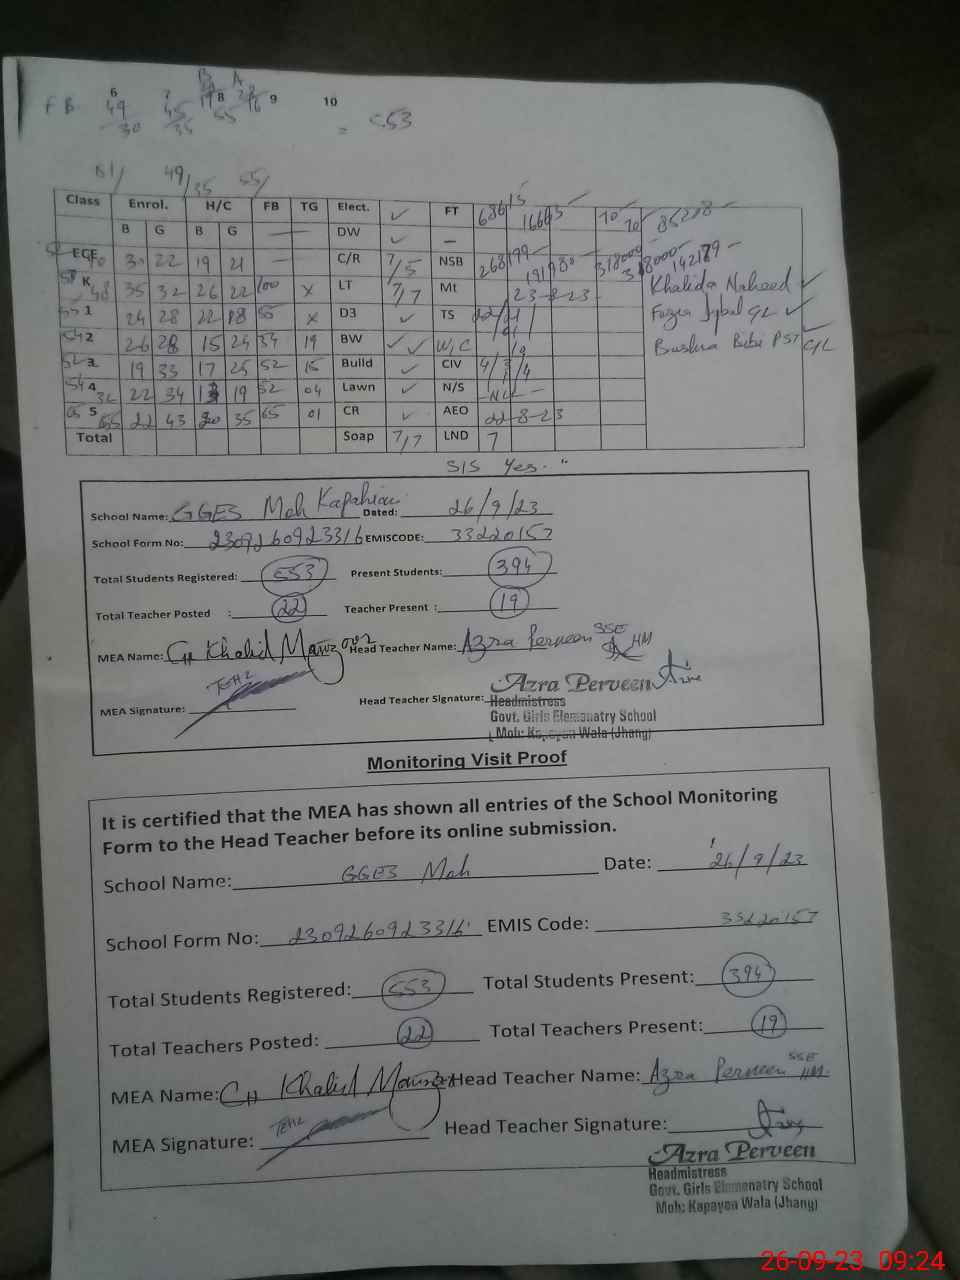 B A
6 7 8 9 10
F B 49 45
30 35 55 = 553
51/ 49/35 55/
Class Enrol. H/C FB TG Elect. ✓ FT 68615 16665 70 70 85218
B G B G DW ✓ –
ECE 30 22 19 21 C/R 7/5 NSB 268199 191980 318000 318000 142179
K 35 32 26 22 100 x LT 7/7 Mt 23-8-23 Khalida Naheed ✓
1 24 28 22 18 55 x D3 ✓ TS 22/21/ Fozia Iqbal C/L ✓
2 26 28 15 24 54 19 BW ✓✓ W/C Bushra Bibi PST C/L
3 19 33 17 25 52 15 Build ✓ CIV 4/3/4
4 22 34 13 19 52 04 Lawn ✓ N/S –NIL–
5 22 43 30 35 65 01 CR ✓ AEO 22-8-23
Total Soap 7/7 LND 7
SIS Yes.
School Name: GGES Moh Kapahian Dated: 26/9/23
School Form No: 2309260923316 EMISCODE: 33220157
Total Students Registered: 553 Present Students: 394
Total Teacher Posted : 22 Teacher Present : 19
MEA Name: CH Khalid Manzoor Head Teacher Name: Azra Perveen SSE HM
MEA Signature: Head Teacher Signature:
Azra Perveen
Headmistress
Govt. Girls Elemenatry School
Moh: Kapayan Wala (Jhang)
Monitoring Visit Proof
It is certified that the MEA has shown all entries of the School Monitoring
Form to the Head Teacher before its online submission.
School Name: GGES Moh Date: 26/9/23
School Form No: 2309260923316 EMIS Code: 33220157
Total Students Registered: 553 Total Students Present: 394
Total Teachers Posted: 22 Total Teachers Present: 19
MEA Name: CH Khalid Manzoor Head Teacher Name: Azra Perveen SSE HM.
MEA Signature: Head Teacher Signature:
Azra Perveen
Headmistress
Govt. Girls Elemenatry School
Moh: Kapayan Wala (Jhang)
26-09-23 09:24